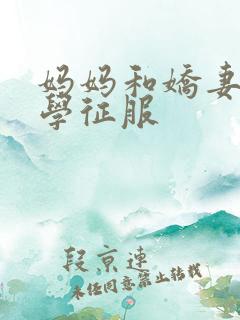 妈妈和嬌妻
學征服
段京連
未经同意禁止转载